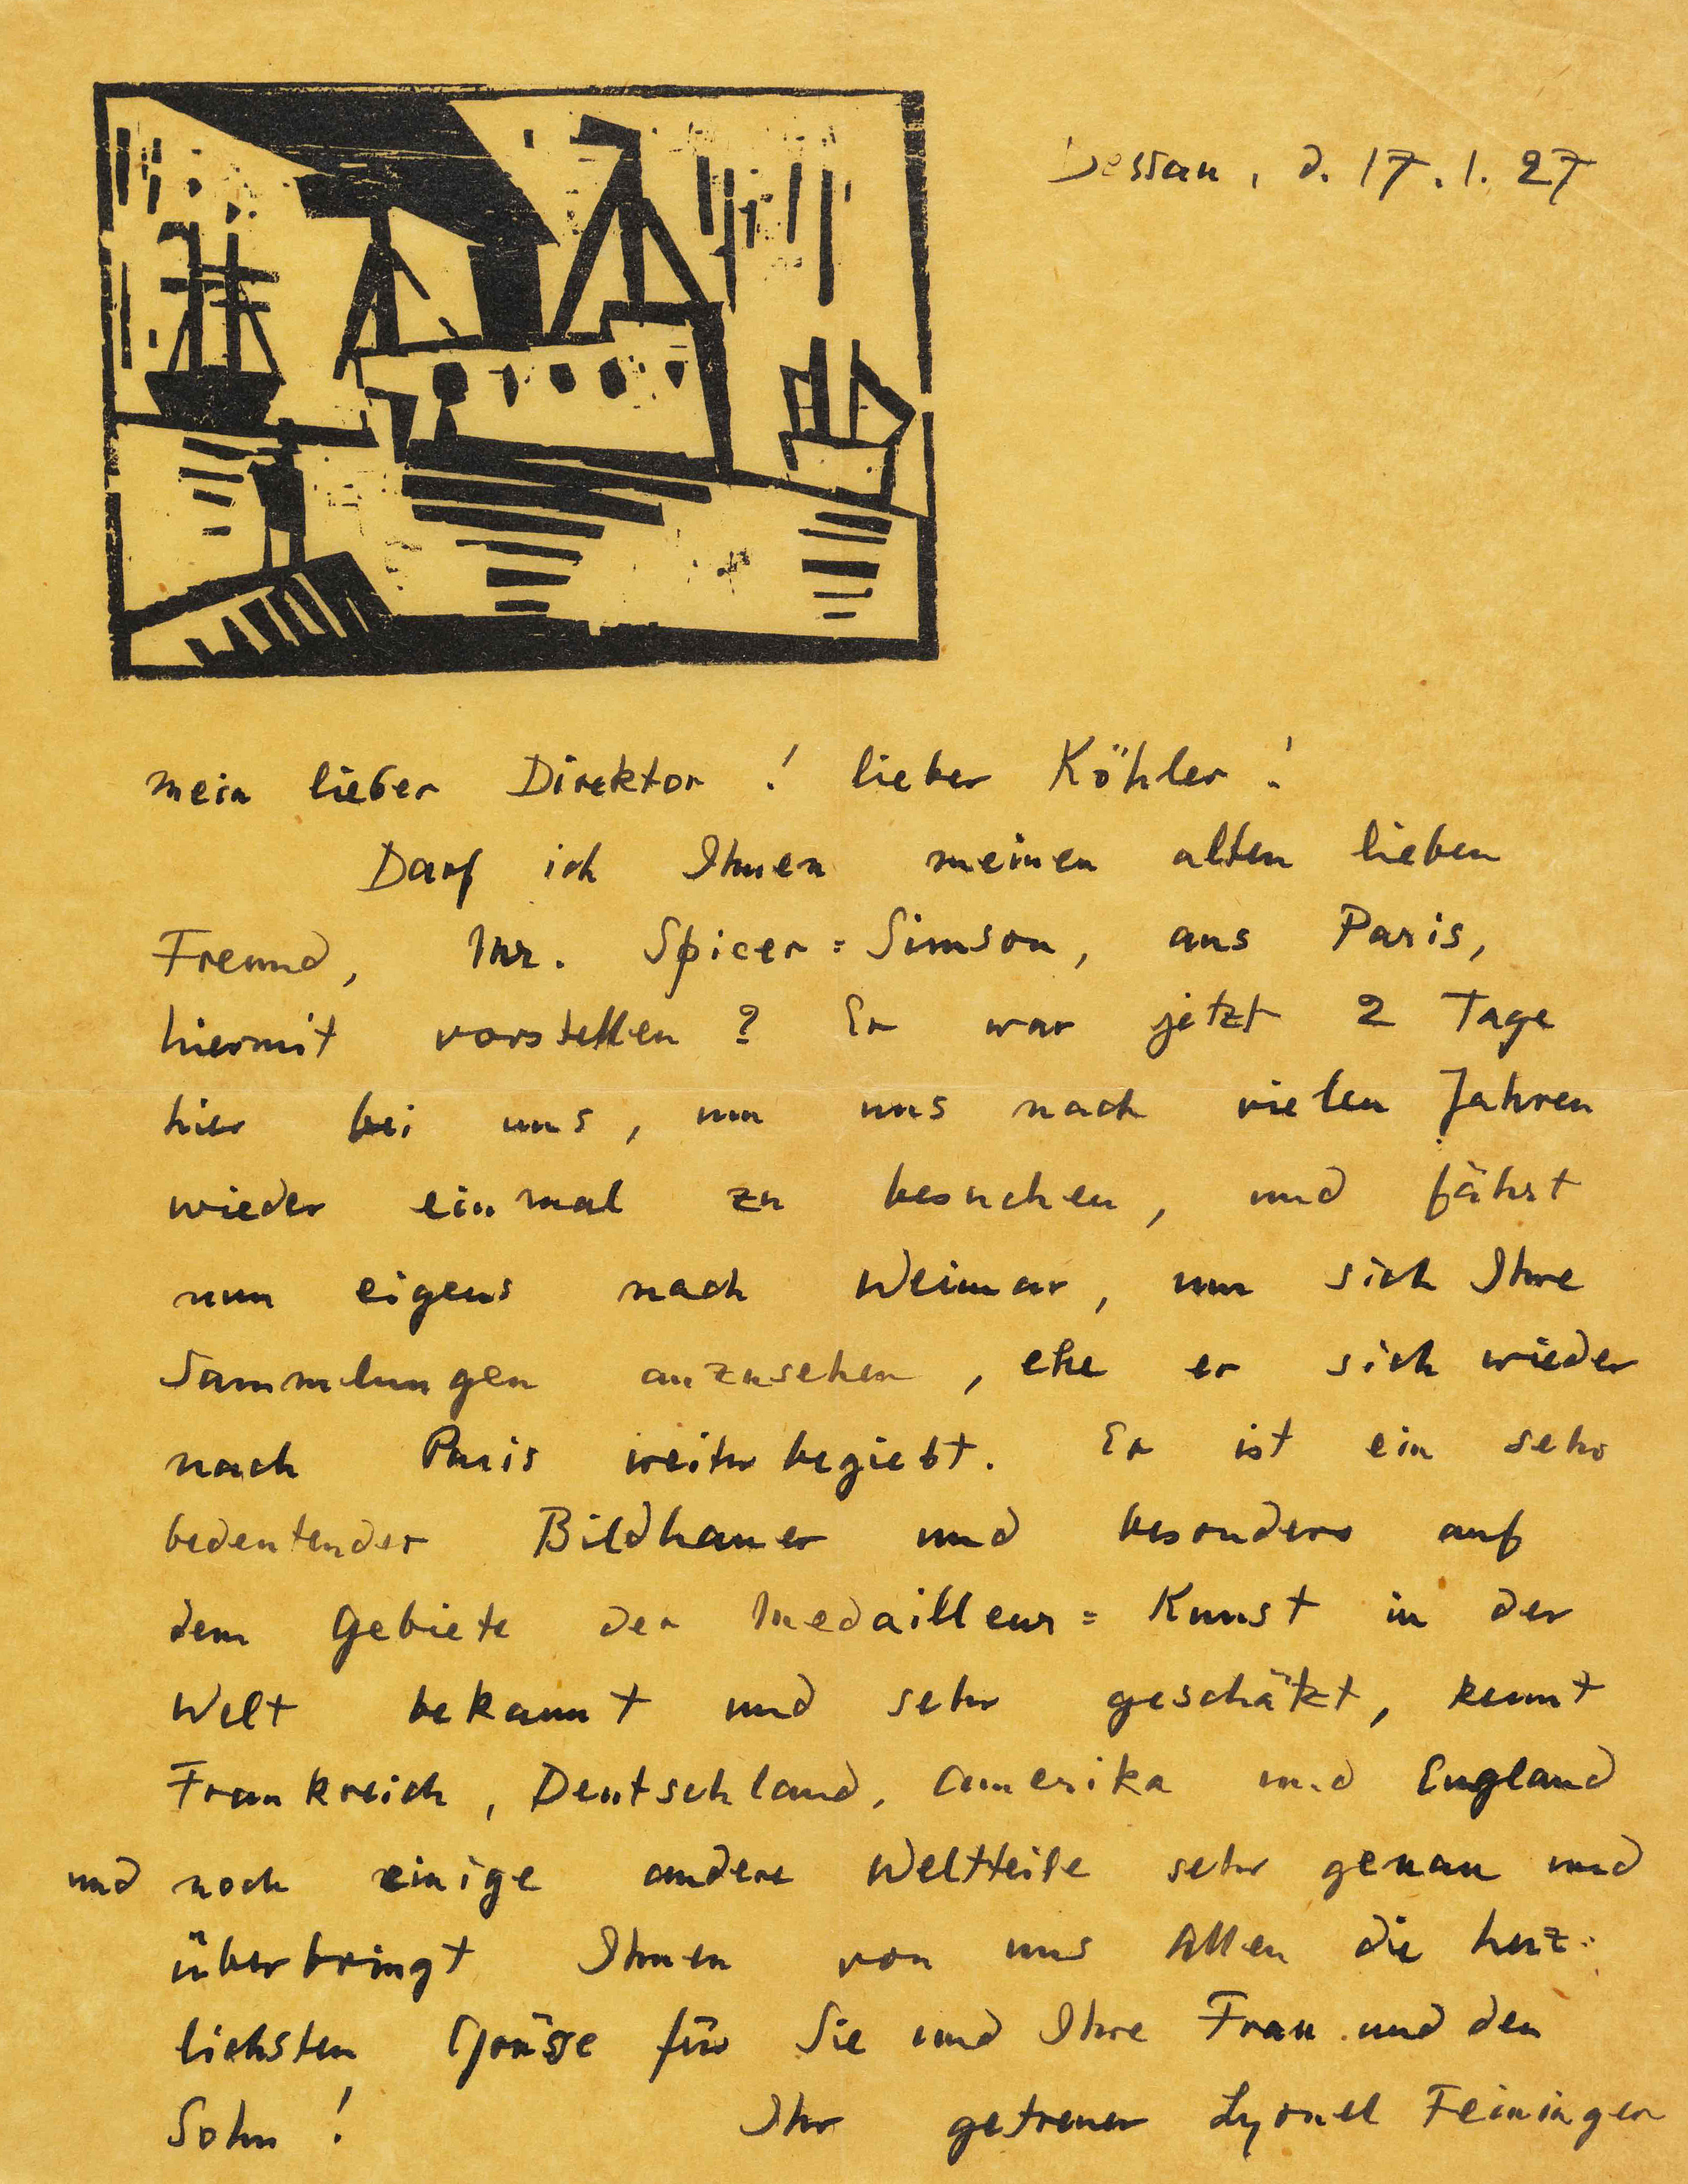 Dessau, d. 17. 1. 27
mein lieber Direktor! lieber Köhler!
Darf ich Ihnen meinen alten lieben
Freund, Mr. Spicer=Simson, aus Paris,
hiermit vorstellen? Er war jetzt 2 Tage
hier bei uns, um uns nach vielen Jahren
wieder einmal zu besuchen, und fährt
nun eigens nach Weimar, um sich Ihre
Sammlungen anzusehen, ehe er sich wieder
nach Paris weiter begiebt. Er ist ein sehr
bedeutender Bildhauer und besonders auf
dem Gebiete der Medailleur=Kunst in der
Welt bekannt und sehr geschätzt, kennt
Frankreich, Deutschland, Amerika und England
und noch einige andere Weltteile sehr genau und
überbringt Ihnen von uns Allen die herz-
lichsten Grüsse für Sie und Ihre Frau und den
Sohn! Ihr getreuer Lyonel Feininger